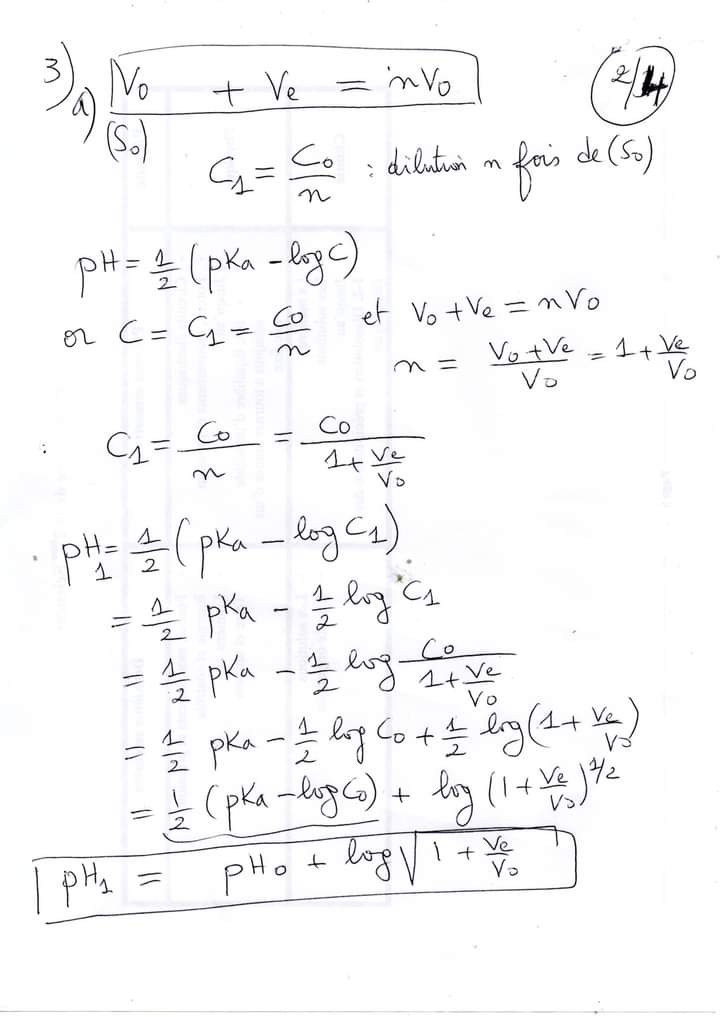 3) a) V₀ + Ve = nV₀
2/4
(S₀)
C₁ = C₀/n : dilution n fois de (S₀)
pH = 1/2 (pKa - log C)
or C = C₁ = C₀/n et V₀ + Ve = nV₀
n = (V₀ + Ve)/V₀ = 1 + Ve/V₀
: C₁ = C₀/n = C₀/(1 + Ve/V₀)
. pH₁ = 1/2 (pKa - log C₁)
= 1/2 pKa - 1/2 log C₁
= 1/2 pKa - 1/2 log C₀/(1 + Ve/V₀)
= 1/2 pKa - 1/2 log C₀ + 1/2 log (1 + Ve/V₀)
= 1/2 (pKa - log C₀) + log (1 + Ve/V₀)^1/2
pH₁ = pH₀ + log √(1 + Ve/V₀)